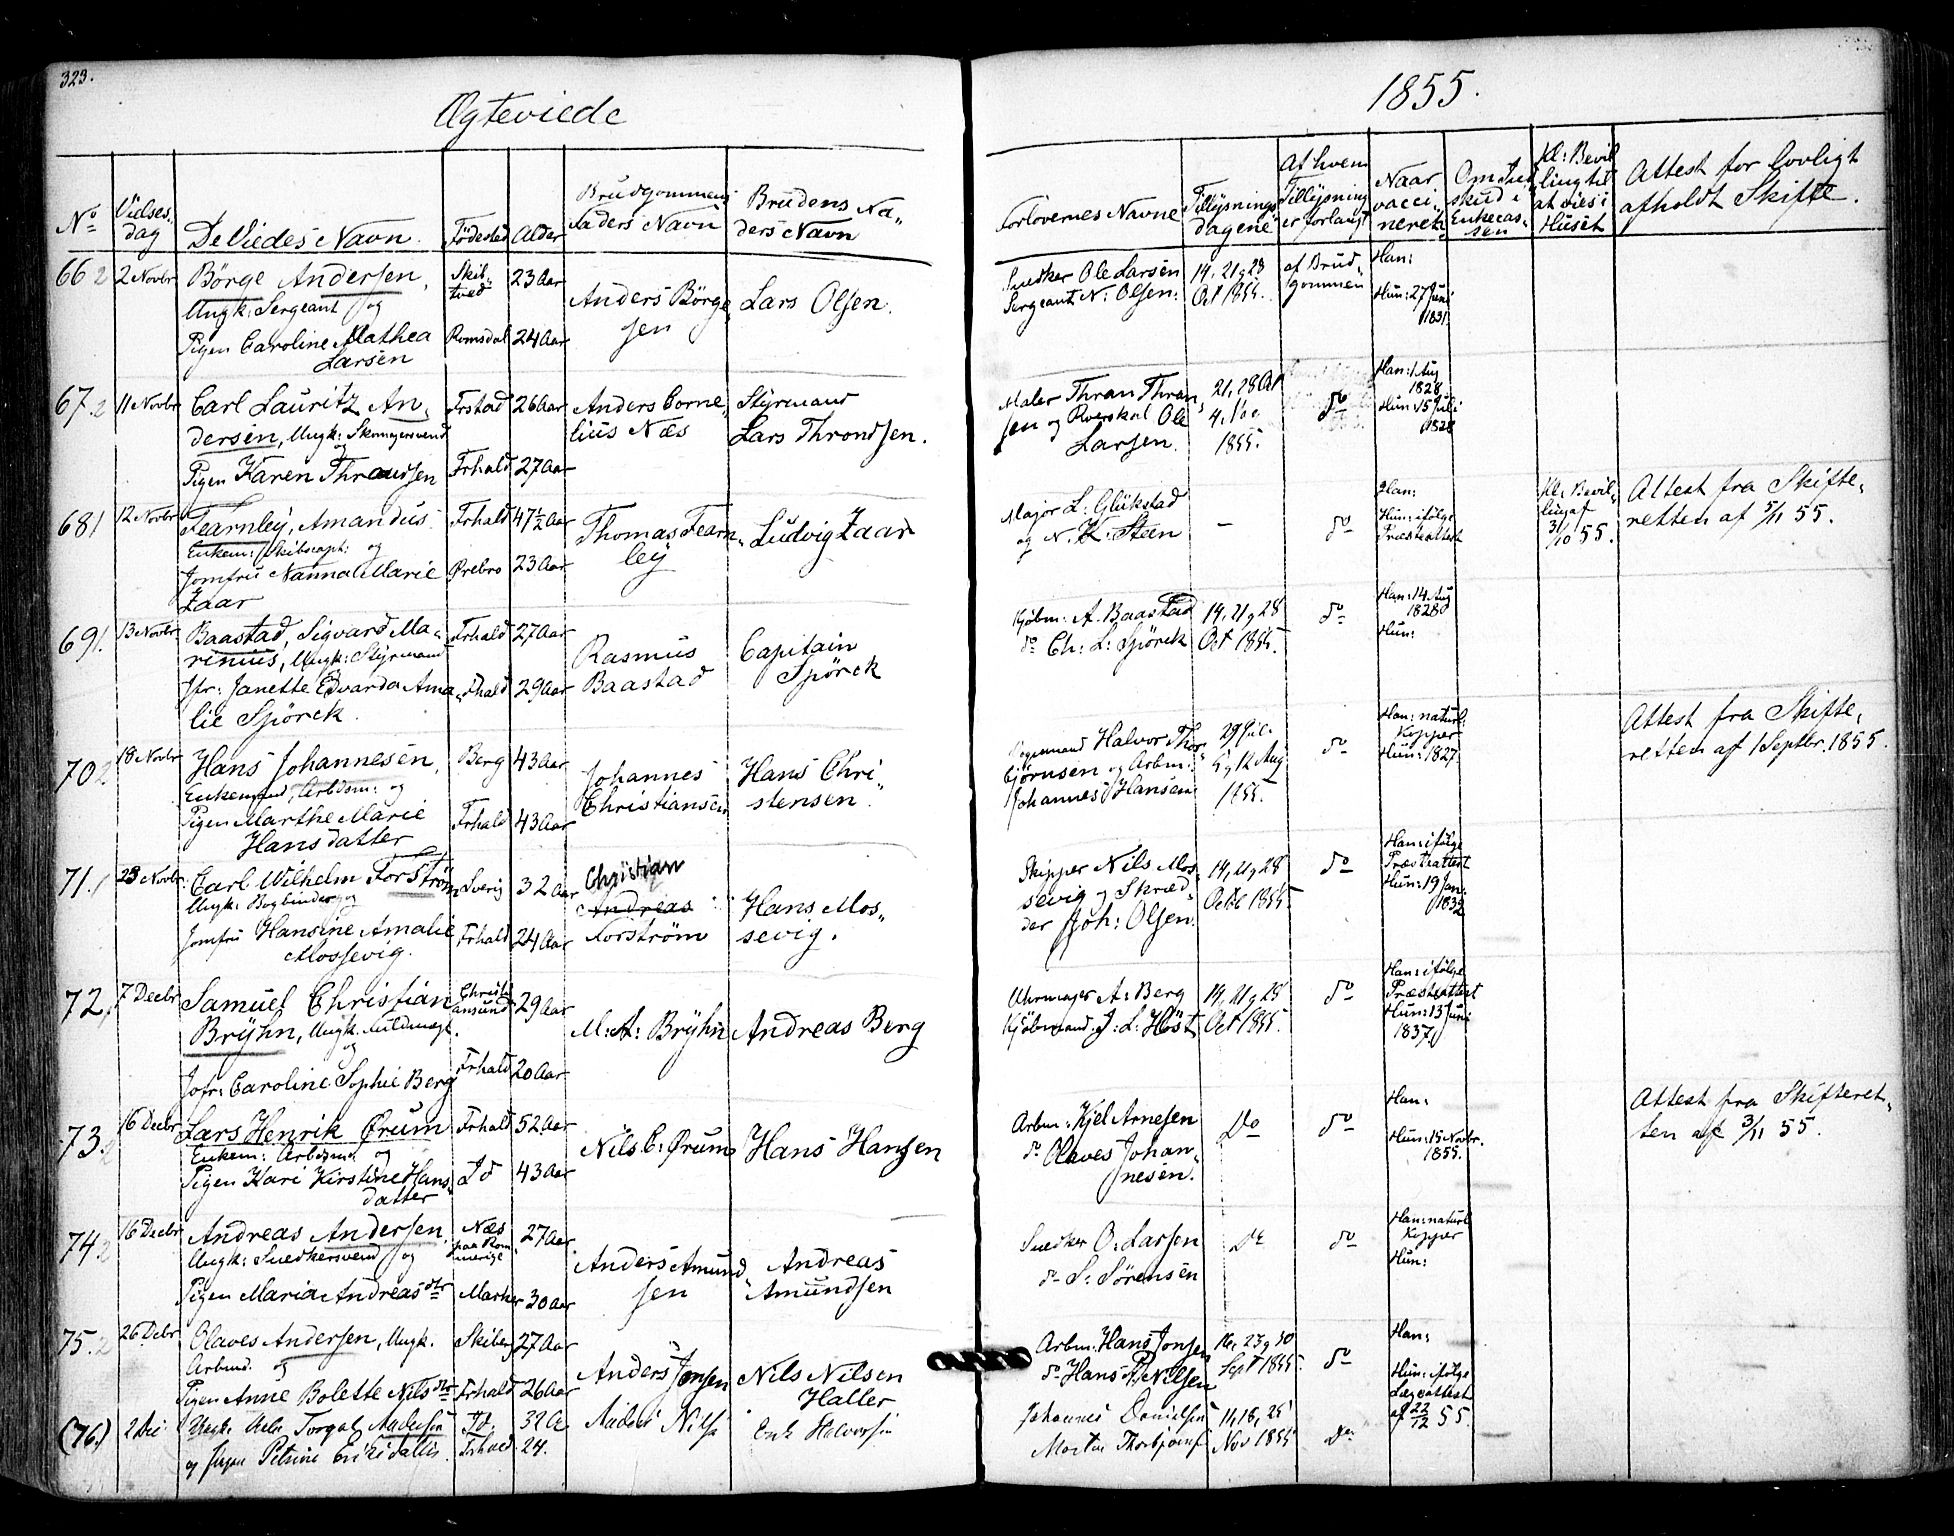 323.
Ægteviede
1855.
No
Vielses
dag
De Viedes Navn.
Födested
Alder
Brudgommens
Faders Navn
Brudens Fa-
ders Navn
Forlovernes Navne
Tillysnings
dagene
Af hvem
Tillysning
er forlangt
Naar
vacci-
neret
Om Ind
skud i
Enkecas-
sen
Kl: Bevil
ling til
at vies i
Huset
Attest for lovligt
afholdt Skifte.
66 2
2 Novbr
Börge Andersen,
Ungk: Sergeant og
Pigen Caroline Mathea
Larsen
Skib-
tved
Romsdal
23 Aar
24 Aar
Anders Börge
sen
Lars Olsen.
Snedker Ole Larsen
Sergeant N: Olsen.
14, 21 og 28
Oct 1855.
af Brud-
gommen
Han:
Hun: 27 Juni
1831.
67. 2
11 Novbr
Carl Lauritz An-
dersen, Ungk: Skomagersvend
og
Pigen Karen Throndsen
Frstad
Frhald
26 Aar
27 Aar
Anders Corne-
lius Næs
Styrmand
Lars Throndsen.
Maler Thran Thran-
sen og Ole
Larsen.
21, 28 Oct
4,
1855.
do
Han: 1 Aug
1828
Hun: 15 Juli
1828
68 1
12 Novbr
Fearnley, Amandus
Enkem: Skibscapt: og
Jomfru Nanna Marie
Zaar
Frhald
Örebro
47½ Aar
23 Aar
Thomas Fearn-
ley
Ludvig Zaar
Major L: Glükstad
og N. K: Steen
-
do
Han:
Hun: ifölge
Præsteattest
Kl: Bevil-
ling af
31/10 55.
Attest fra Skifte-
retten af 5/11 55.
69 1.
13 Novbr
Baastad, Sigvard Ma-
rinius, Ungk: Styrmand
og
Jfr: Janette Edvarda Ama-
lie Spörck.
Frhald
Fhald
27 Aar
29 Aar
Rasmus
Baastad
Capitain
Spörck
Kjöbm: A. Baastad
do Ch: L: Spörck
14, 21 og 28
Oct 1855.
do
Han: 14 Aug
1828
Hun:
70 2
18 Novbr
Hans Johannesen,
Enkemand, Arbdsm: og
Pigen Marthe Marie
Hansdatter
Berg
Frhald
43 Aar
43 Aar
Johannes
Christiansen
Hans Chri-
stensen.
Halvor Thor-
björnsen og Arbm:
Johannes Hansen
29 Juli
5 og 12 Aug
1855.
do
Han: naturl:
Kopper
Hun: 1827.
Attest fra Skifte-
retten af 1 Septbr. 1855.
71. 1
23 Novbr
Carl Wilhelm Forström
Ungk: Bogbinder og
Jomfru Hansine Amalie
Mossevig.
Sverig
Frhald
32 Aar
24 Aar
Christian
Andreas
Forström
Hans Mos-
sevig.
Skipper Nils Mos-
sevig og Skræd-
der Joh: Olsen.
14, 21 og 28
Octb 1855.
do
Han: ifölge
Præsteattest
Hun: 19 Jan.
1832
72, 1
7 Decbr
Samuel Christian
Bryhn, Ungk. Fuldmægt.
og
Jofr: Caroline Sophie Berg
Christi-
ansund
Frhald
29 Aar
20 Aar
M: A: Bryhn
Andreas Berg
Uhrmager A: Berg
Kjöbmand. J: L: Höst
14, 21 og 28
Oct 1855.
do
Han: ifölge
Præsteattest
Hun: 13 Juni
1837.
73. 2
16 Decbr
Lars Henrik Ørum
Enkem: Arbdsmd. og
Pigen Kari Kirstine Hans-
datter
Frhald
Id
52 Aar
43 Aar
Nils C: Ørum
Hans Hansen
Arbm: Kjel Arnesen
do Olaves Johan-
nesen.
Do
do
Han:
Hun: 15 Novbr.
1855.
Attest fra Skifteret-
ten af 3/11 55.
74. 2
16 Decbr
Andreas Andersen,
Ungk: Snedkersvend og
Pigen Maria Andreasdtr
Næs
paa Rom-
merige
Marker
27 Aar
30 Aar
Anders Amund-
sen
Andreas
Amundsen
Snedker O: Larsen
do S: Sörensen
Do
do
Han: naturl
Kopper
Hun:
75. 2
26 Decbr
Olaves Andersen, Ungk.
Arbmd. og
Pigen Anne Bolette Nilsdtr
Skiberg
Frhald
27 Aar
26 Aar
Anders Jensen
Nils Nilsen
Haller
Arbm. Hans Jonsen
do Hans P. Nilsen
16, 23 og 30
Sept 1855.
do
Han:
Hun: ifölge
Lægeattest
af 22/12 55.
(76.)
2 Dec
Ungk. Torgal Andersen
og Pigen Petrine
Id.
Frhald
32 A
24.
Anders Nils
Erik Halvorsen
Johannes Danielsen
Morten Thorbjörns
11, 18, 25
Nov 1855
Do